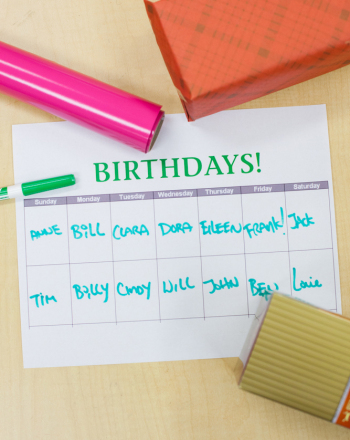 BIRTHDAYS!
Sunday Monday Tuesday Wednesday Thursday Friday Saturday
ANNE Bill CLARA DORA EILEEN FRANK! JACK
TIM Billy Cindy WILL JOHN BEN Louie